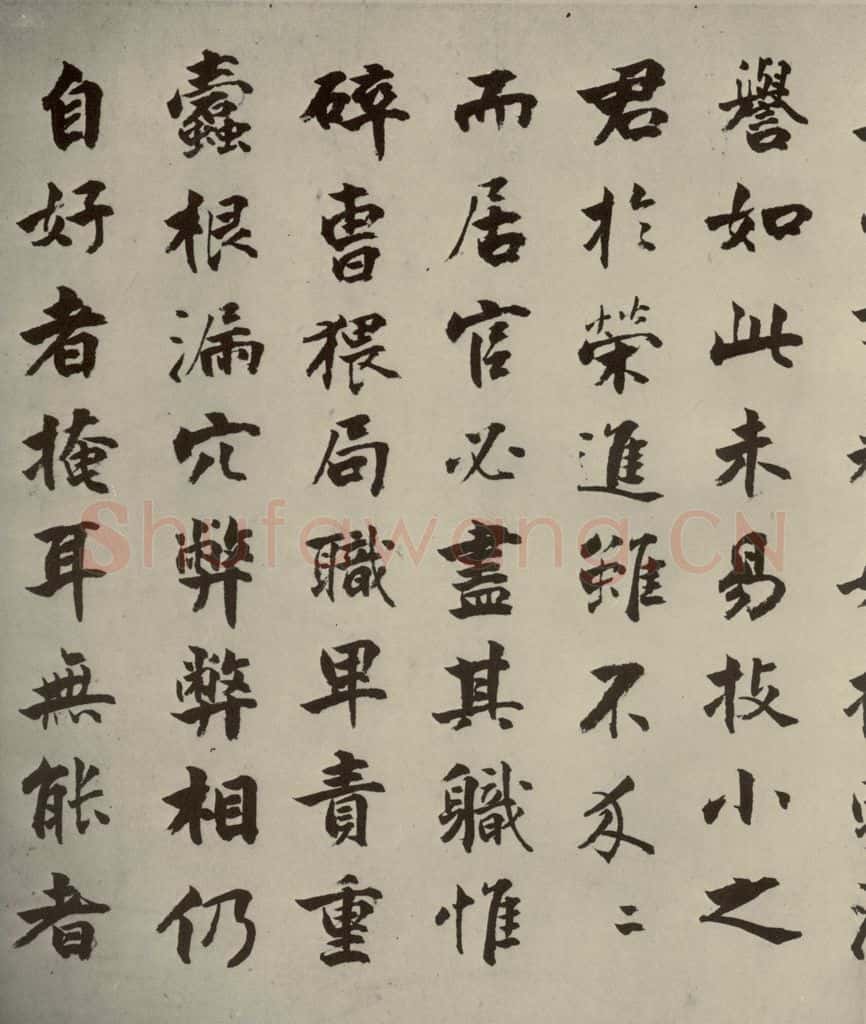 譽如此未易技小之
君於榮進雖不二
而居官必盡其職惟
碎曹猥局職卑責重
蠹根漏穴弊弊相仍
自好者掩耳無能者
Shufawang.CN